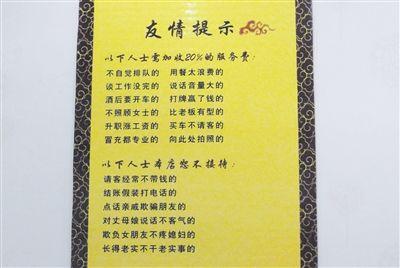 友情提示
以下人士需加收20%的服务费：
不自觉排队的 用餐太浪费的
谈工作没完的 说话音量大的
酒后要开车的 打牌赢了钱的
不照顾女士的 比老板有型的
升职涨工资的 买车不请客的
冒充都专业的 向此处拍照的
以下人士本店恕不接待：
请客经常不带钱的
结账假装打电话的
点话亲戚欺骗朋友的
对丈母娘说话不客气的
欺负女朋友不疼媳妇的
长得老实不干老实事的